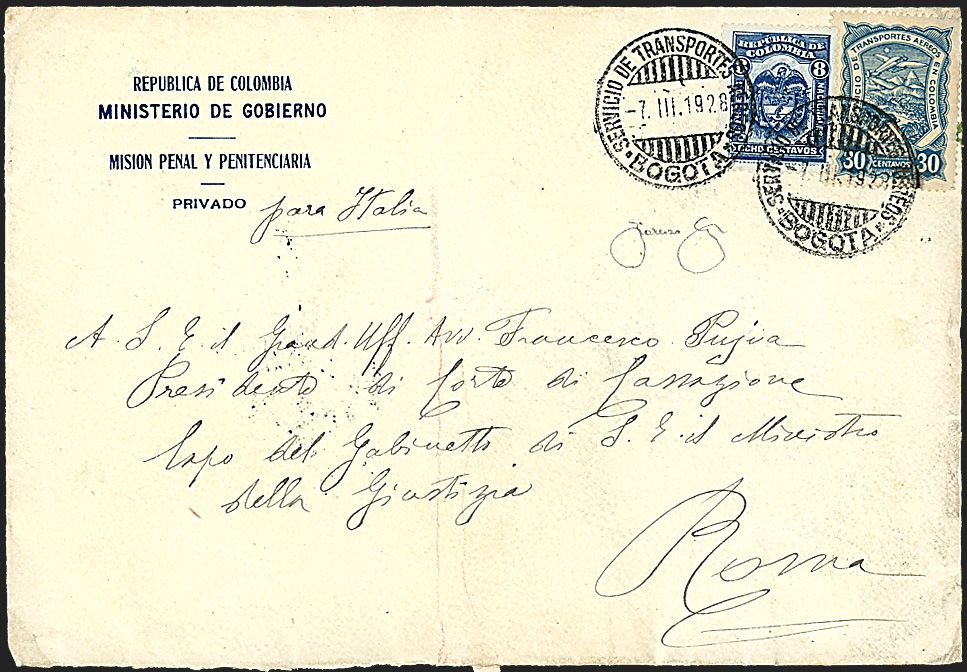 REPUBLICA DE COLOMBIA
MINISTERIO DE GOBIERNO
MISION PENAL Y PENITENCIARIA
PRIVADO
para Italia
SERVICIO DE TRANSPORTES
-7.III.1928
BOGOTA
REPÚBLICA DE COLOMBIA
8 8
OCHO CENTAVOS
SERVICIO DE TRANSPORTES AEREOS EN COLOMBIA
30 CENTAVOS 30
SERVICIO DE TRANSPORTES AEREOS
-7.III.1928
BOGOTA
A S. E. il Grand. Uff. Avv. Francesco Pujia
Presidente di Corte di Cassazione
Capo del Gabinetto di S. E. il Ministro
della Giustizia
Roma